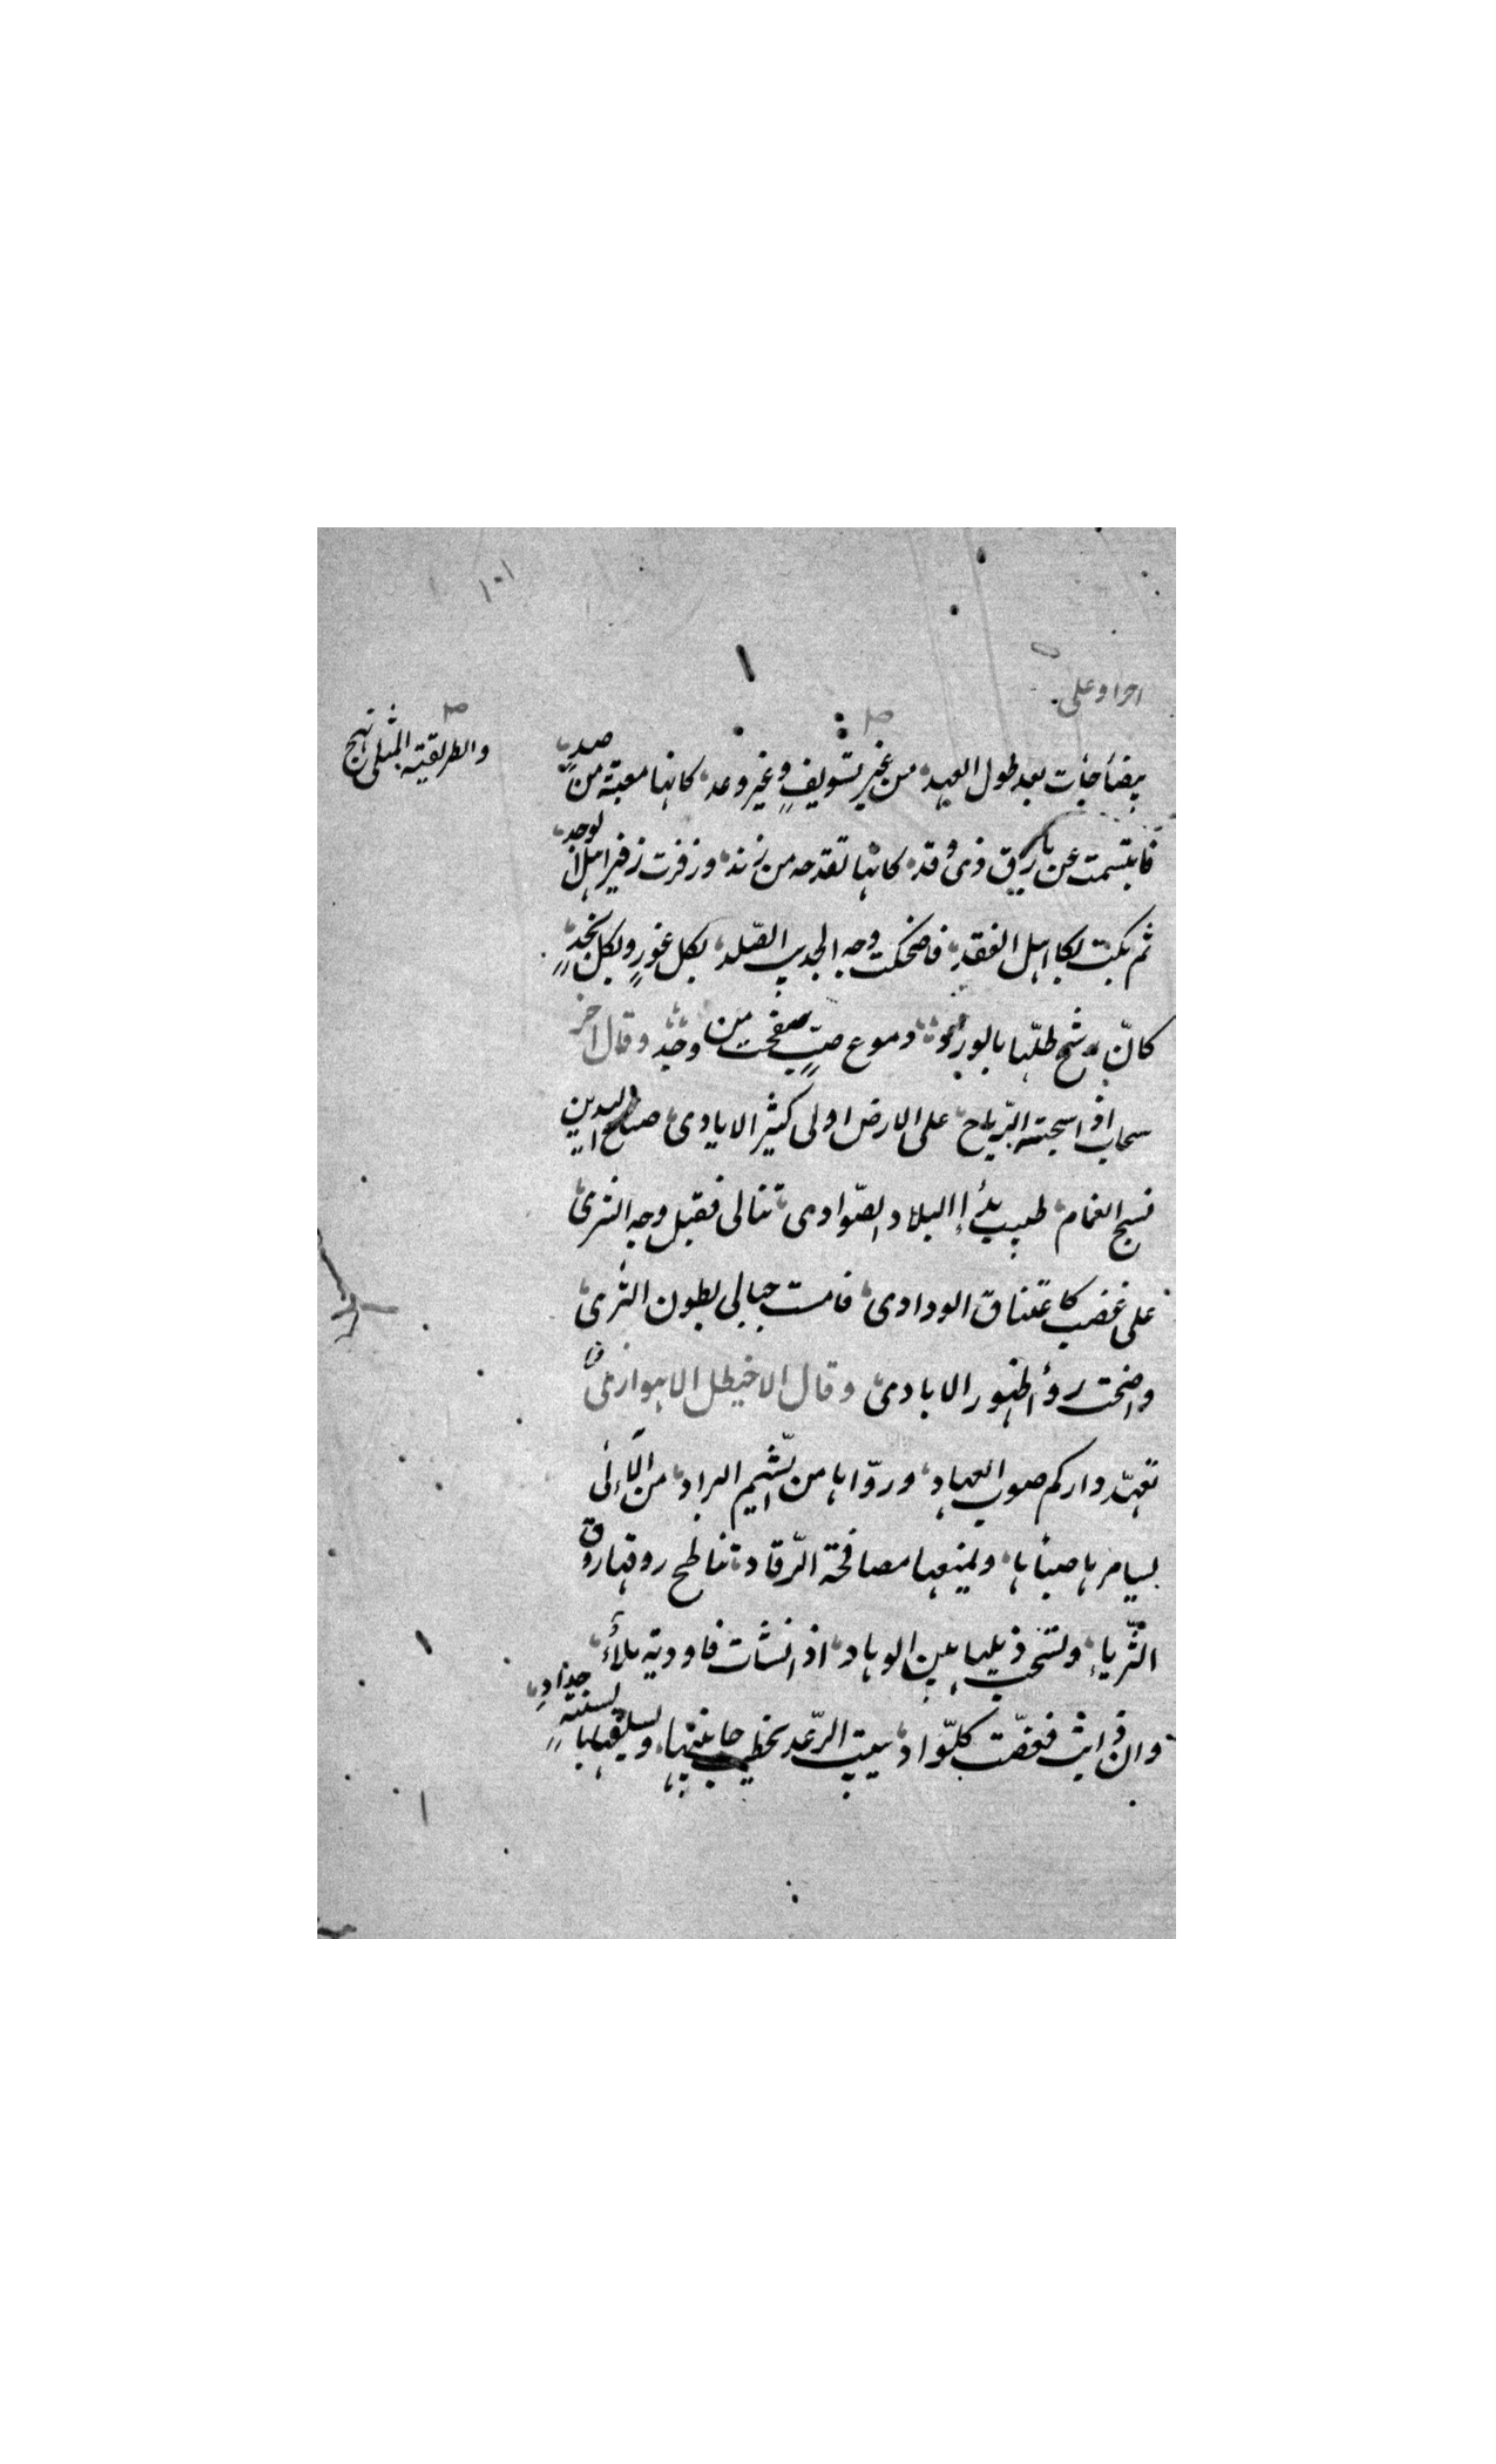 ١٠١
احرا وعلى
والطريقة المثلى انهج
بيضا جات بعد طول العهد، من غير تسويف وغير وعد، كانها معبّة من صد
فابتسمت عن بارق ذى وقد، كانها تقدحه من زند، وزفرت زفير اهل الوجد،
ثم بكت بكا اهل الفقد، فاضحكت وجه الجدب الصّلد، بكل غور وبكل نجد
كانّ رشح طلّها بالورد، دموع صبّ سفحت من وجد، وقال اخر
سحاب اذا سحبته الرّياح، على الارض اولى كثير الايادى، صناع اليدين
نسج الغمام، طبيب بداء البلاد الصّوادى، تنالى فقبل وجه الثرى
على غضب كاعتناق الودادى، فامست حبالى بطون الثرى
واضحت رؤ الظهور الابادى، وقال الاخيطل الاهوازى
تعهّد داركم صوب العهاد، وروّاها من الشيم البراد، من اللائى
يسامرها صباها، ويمنعها مصافحة الرّقاد، تناطح روقها روق
الثّرياء، وتسحب ذيلها بين الوهاد، اذا انشأت فاودية ملاء،
وان ذابت فغصّت كلّ واد، يبيت الرّعد يخطب جانبيها، ويسلقها بالسنة حداد